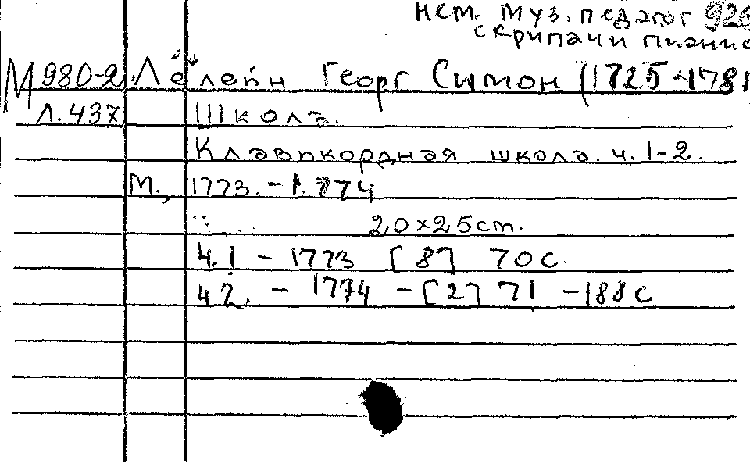 нем. муз. педагог 926
скрипач и пианис
М 980-2 Лёлейн Георг Симон (1725-1781
Л. 437 Школа.
Клавикордная школа. ч. 1-2.
М., 1773. - 1774
20x25 cm.
ч. 1 - 1773 [8] 70 с.
ч 2. - 1774 - [2] 71 - 188 с